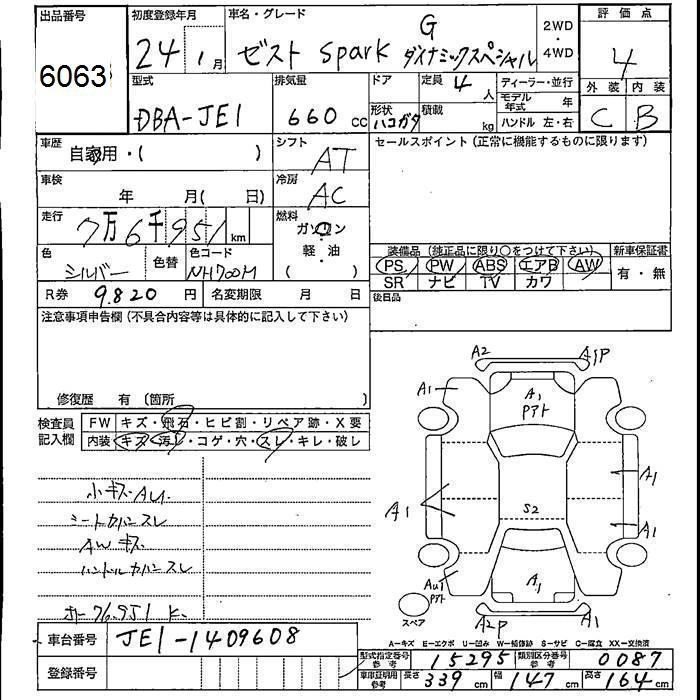 出品番号
6063
初度登録年月
24 1 月
車名・グレード
ゼスト spark G ダイナミックスペシャル
2WD
・
4WD
評価点
4
外装 内装
C B
型式
DBA-JE1
排気量
660 cc
ドア
形状
ハコガタ
定員 4 人
積載 kg
ディーラー・並行
モデル年式 年
ハンドル 左・右
車歴
自家用・( )
シフト
AT
セールスポイント (正常に機能するものに限ります)
車検
年 月( 日)
冷房
AC
走行
7万6千951 km
燃料
ガソリン
軽・油
( )
色
シルバー
色替
色コード
NH700M
装備品 (純正品に限り○をつけて下さい)
PS PW ABS エアB AW
SR ナビ TV カワ
新車保証書
有・無
R券 9,820 円
名変期限 月 日
後日品
注意事項申告欄 (不具合内容等は具体的に記入して下さい)
修復歴 有 (箇所 )
検査員
記入欄
FW キズ・飛石・ヒビ割・リペア跡・X要
内装 キズ・汚れ・コゲ・穴・スレ・キレ・破レ
小キズAU.
シートカバンスレ
AWキズ
ハンドルカバンスレ
ホー76.951 K.
A2 A1P
A1
A1
Pアト
A1
A1
A1
S2
AU1
Pアト
A1
A2P A1
スペア
A−キズ E−エクボ U−凹み W−補修跡 S−サビ C−腐食 XX−交換済
車台番号 JE1-1409608
登録番号
型式指定番号
参考
15295
類別区分番号
参考
0087
車庫証明用
参考
長さ 339 cm 幅 147 cm 高さ 164 cm